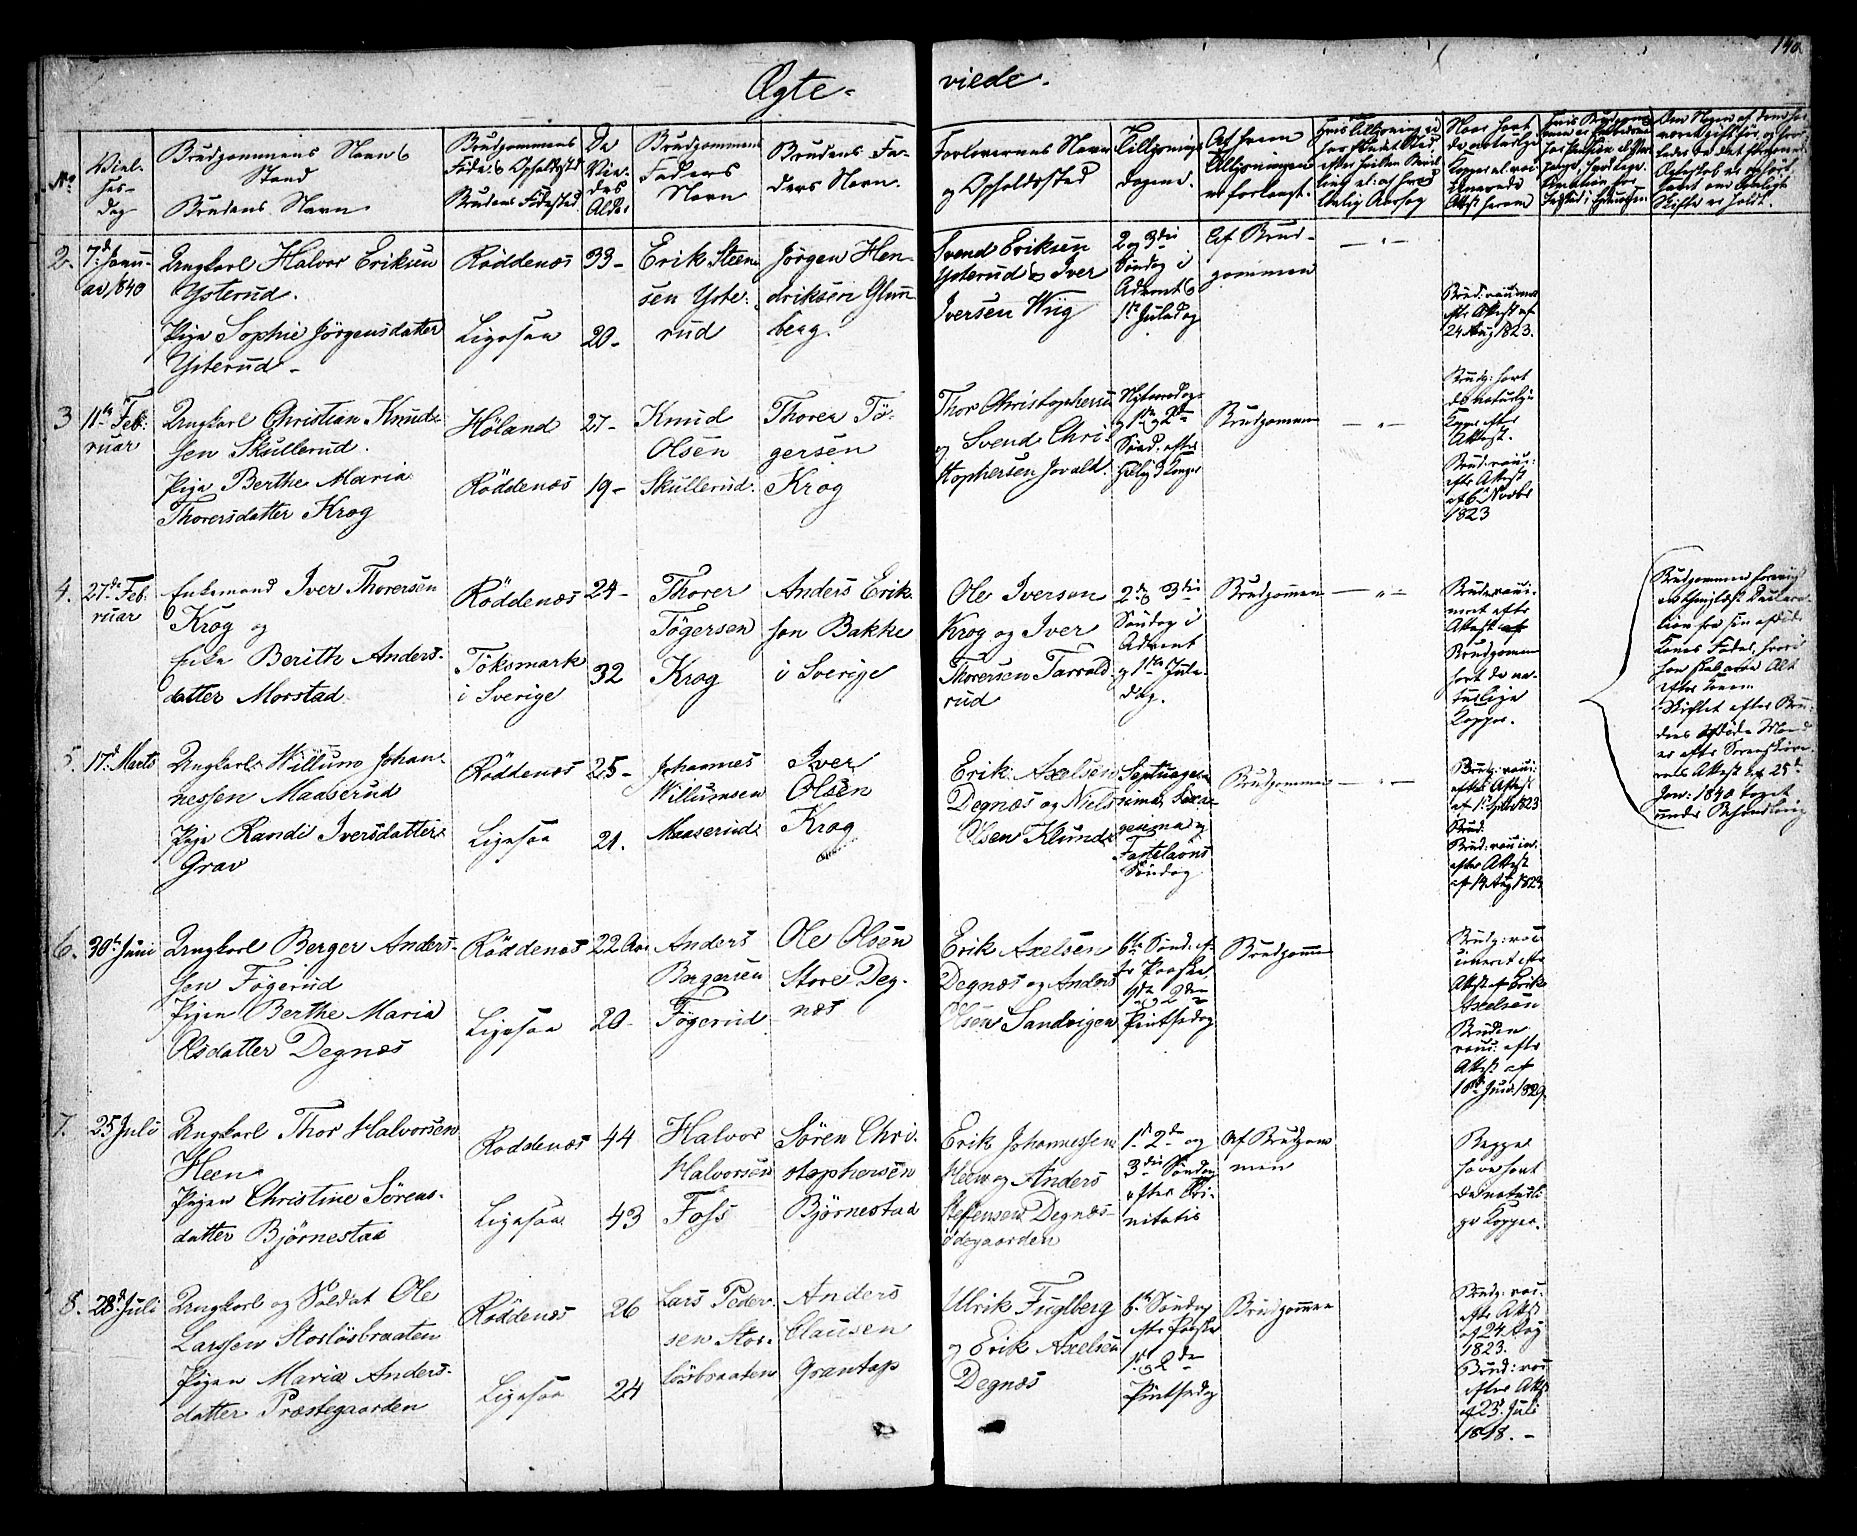 140.
Ægte-
viede.
No
Viel-
ses-
dag
Brudgommens Navn &
Stand
Brudens Navn
Brudgommens
Føde & Opholdssted
Brudens Fødested
De
Vie-
des
Alder
Brudgommens
Faders
Navn
Brudens Fa-
ders Navn.
Forlovernes Navn
og Opholdssted
Tillysnings
dagene.
Af hvem
Tillysningen
er forlangt.
2.
7de Janu-
ar 1840
Ungkarl Halvor Eriksen
Ysterud.
Pige Sophie Jörgensdatter
Ysterud -
Röddenæs
Ligesaa
33-
20-
Erik Steen
sen Yste-
rud
Jörgen Hen-
driksen Glum-
berg.
Svend Eriksen
Ysterud & Iver
Iversen Wüg
2 og 3die
Söndag i
Advent &
1ste Juledag
Af Brud-
gommen
— " —
Brud: vaccineret
eftr Attest af
24 Aug 1823.
3
11te Feb:
ruar
Ungkarl Christian Knud-
sen Skullerud.
Pige Berthe Maria
Thorersdatter Krog
Höland
Röddenæs
27-
19-
Knud
Olsen
Skullerud.
Thorer Tö-
gersen
Krog
Thor Christophersen
og Svend Chri-
stophersen Jovald.
Nytaarsdag
og 1ste og 2den
Sönd. efter
Hellig 3 Konger
Brudgommen
— " —
Brudg: havt
de naturlige
Kopper efter
Attest.
Brud: vacc:
efter Attest
af 6 Novbr
1823
4.
27de Feb:
ruar
Enkemand Iver Thorersen
Krog og
Enke Berith Anders-
datter Morstad
Röddenæs
Töksmark
i Sverige
24-
32
Thorer
Tögersen
Krog
Anders Erik-
sen Bakke
i Sverige
Ole Iversen
Krog og Iver
Thorersen Tarrald-
rud
2den & 3die
Söndag i
Advent
og 1ste Jule-
dag.
Brudgommen
— " —
Bruden vacci-
neret efter
Attest af
Brudgommen
havt de na-
turlige
Kopper.
Skiftet efter Bru-
dens afdöde Mand
er efter Sorenskrive-
rens Attest af 25de
Jan: 1840 taget
under Behandling
5.
17de Marts
Ungkarl Willum Johan-
nessen Maaserud
Pige Randi Iversdatter
Grav
Röddenæs
Ligesaa
25-
21.
Johannes
Willumsen
Maaserud
Iver
Olsen
Krog
Erik Axelsen
Degnæs og Niels
Olsen Klund
Septuages-
sima, Sexa-
gesima og
Fastelavns
Söndag
Brudgommen
— " —
6.
30te Juni
Ungkarl Berger Anders-
sen Fögerud
Pigen Berthe Maria
Olsdatter Degnæs
Röddenæs
Ligesaa
22 Aar
20-
Anders
Bergersen
Fögerud
Ole Olsen
Store Deg-
næs
Erik Axelsen
Degnæs og Anders
Olsen Sandvigen
6te Sönd. ef-
ter Paaske
1ste og 2den
Pintsedag
Brudgommen
Brudg: vac-
cineret efter
Attest af Erik
Axelsen
Bruden
vacc: efter
Attest af
7.
25 Juli
Ungkarl Thor Halvorsen
Heen
Pigen Christine Sörens-
datter Björnestad
Röddenæs
Ligesaa
44
43
Halvor
Halvorsen
Foss
Sören Chri-
stophersen
Björnestad
Erik Johannessen
Heen og Anders
Steffensen Degnæs-
ödegaarden
1ste 2den og
3die Söndag
efter Tri-
nitatis
Af Brudgom
men
Begge
have havt
de naturli-
ge Kopper.
8.
28de Juli
Ungkarl og Soldat Ole
Larssen Storlösbraaten
Pigen Maria Anders-
datter Præstegaarden
Röddenæs
Ligesaa
26
24
Lars Peder-
sen Stor-
lösbraaten
Anders
Clausen
Grantop
Ulrik Fuglberg
og Erik Axelsen
Degnæs
6te Söndag
eftr Paaske
1ste & 2den
Pintsedag
Brudgommen
Brudg: vac.
eftr Attest
af 24 Aug
1823.
Brud: vac
efter Attest
af 23 Juli
1818. -